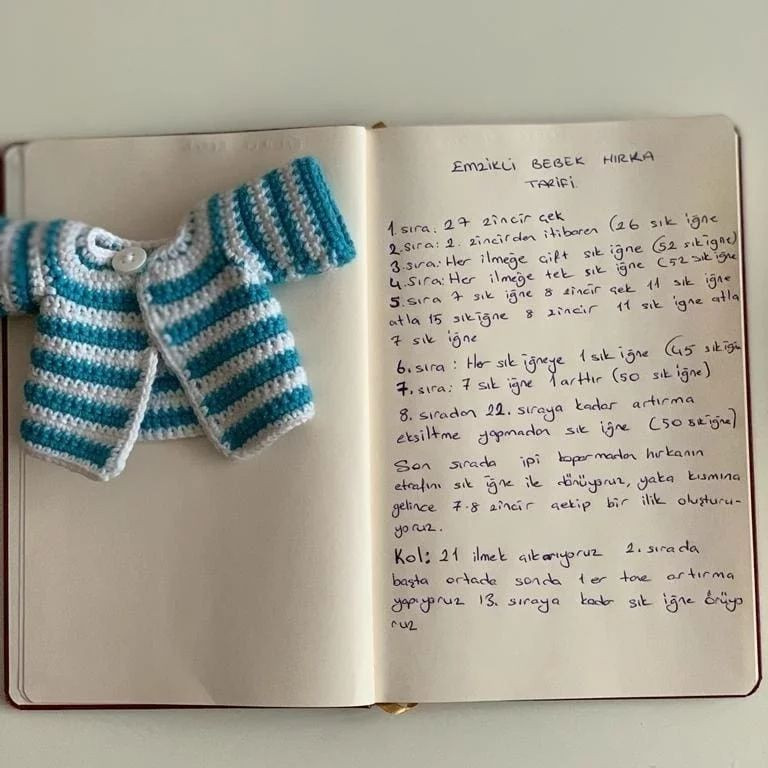 EMZİKLİ BEBEK HIRKA
TARİFİ.
1.sıra: 27 zincir çek
2.sıra: 2. zincirden itibaren (26 sık iğne
3.sıra: Her ilmeğe çift sık iğne (52 sıkiğne)
4.Sıra: Her ilmeğe tek sık iğne (52 sık iğne
5.Sıra 7 sık iğne 8 zincir çek 11 sık iğne
atla 15 sıkiğne 8 zincir 11 sık iğne atla
7 sık iğne
6.sıra: Her sık iğneye 1 sık iğne (45 sıkiğn
7.sıra: 7 sık iğne 1 arttır (50 sık iğne)
8. sıradan 22. sıraya kadar artırma
eksiltme yapmadan sık iğne (50 sıkiğne)
Son sırada ipi koparmadan hırkanın
etrafını sık iğne ile dönüyoruz, yaka kısmına
gelince 7-8 zincir çekip bir ilik oluşturu-
yoruz.
Kol: 21 ilmek çıkarıyoruz 2. sırada
başta ortada sonda 1 er tane artırma
yapıyoruz 13. sıraya kadar sık iğne örüyo
ruz